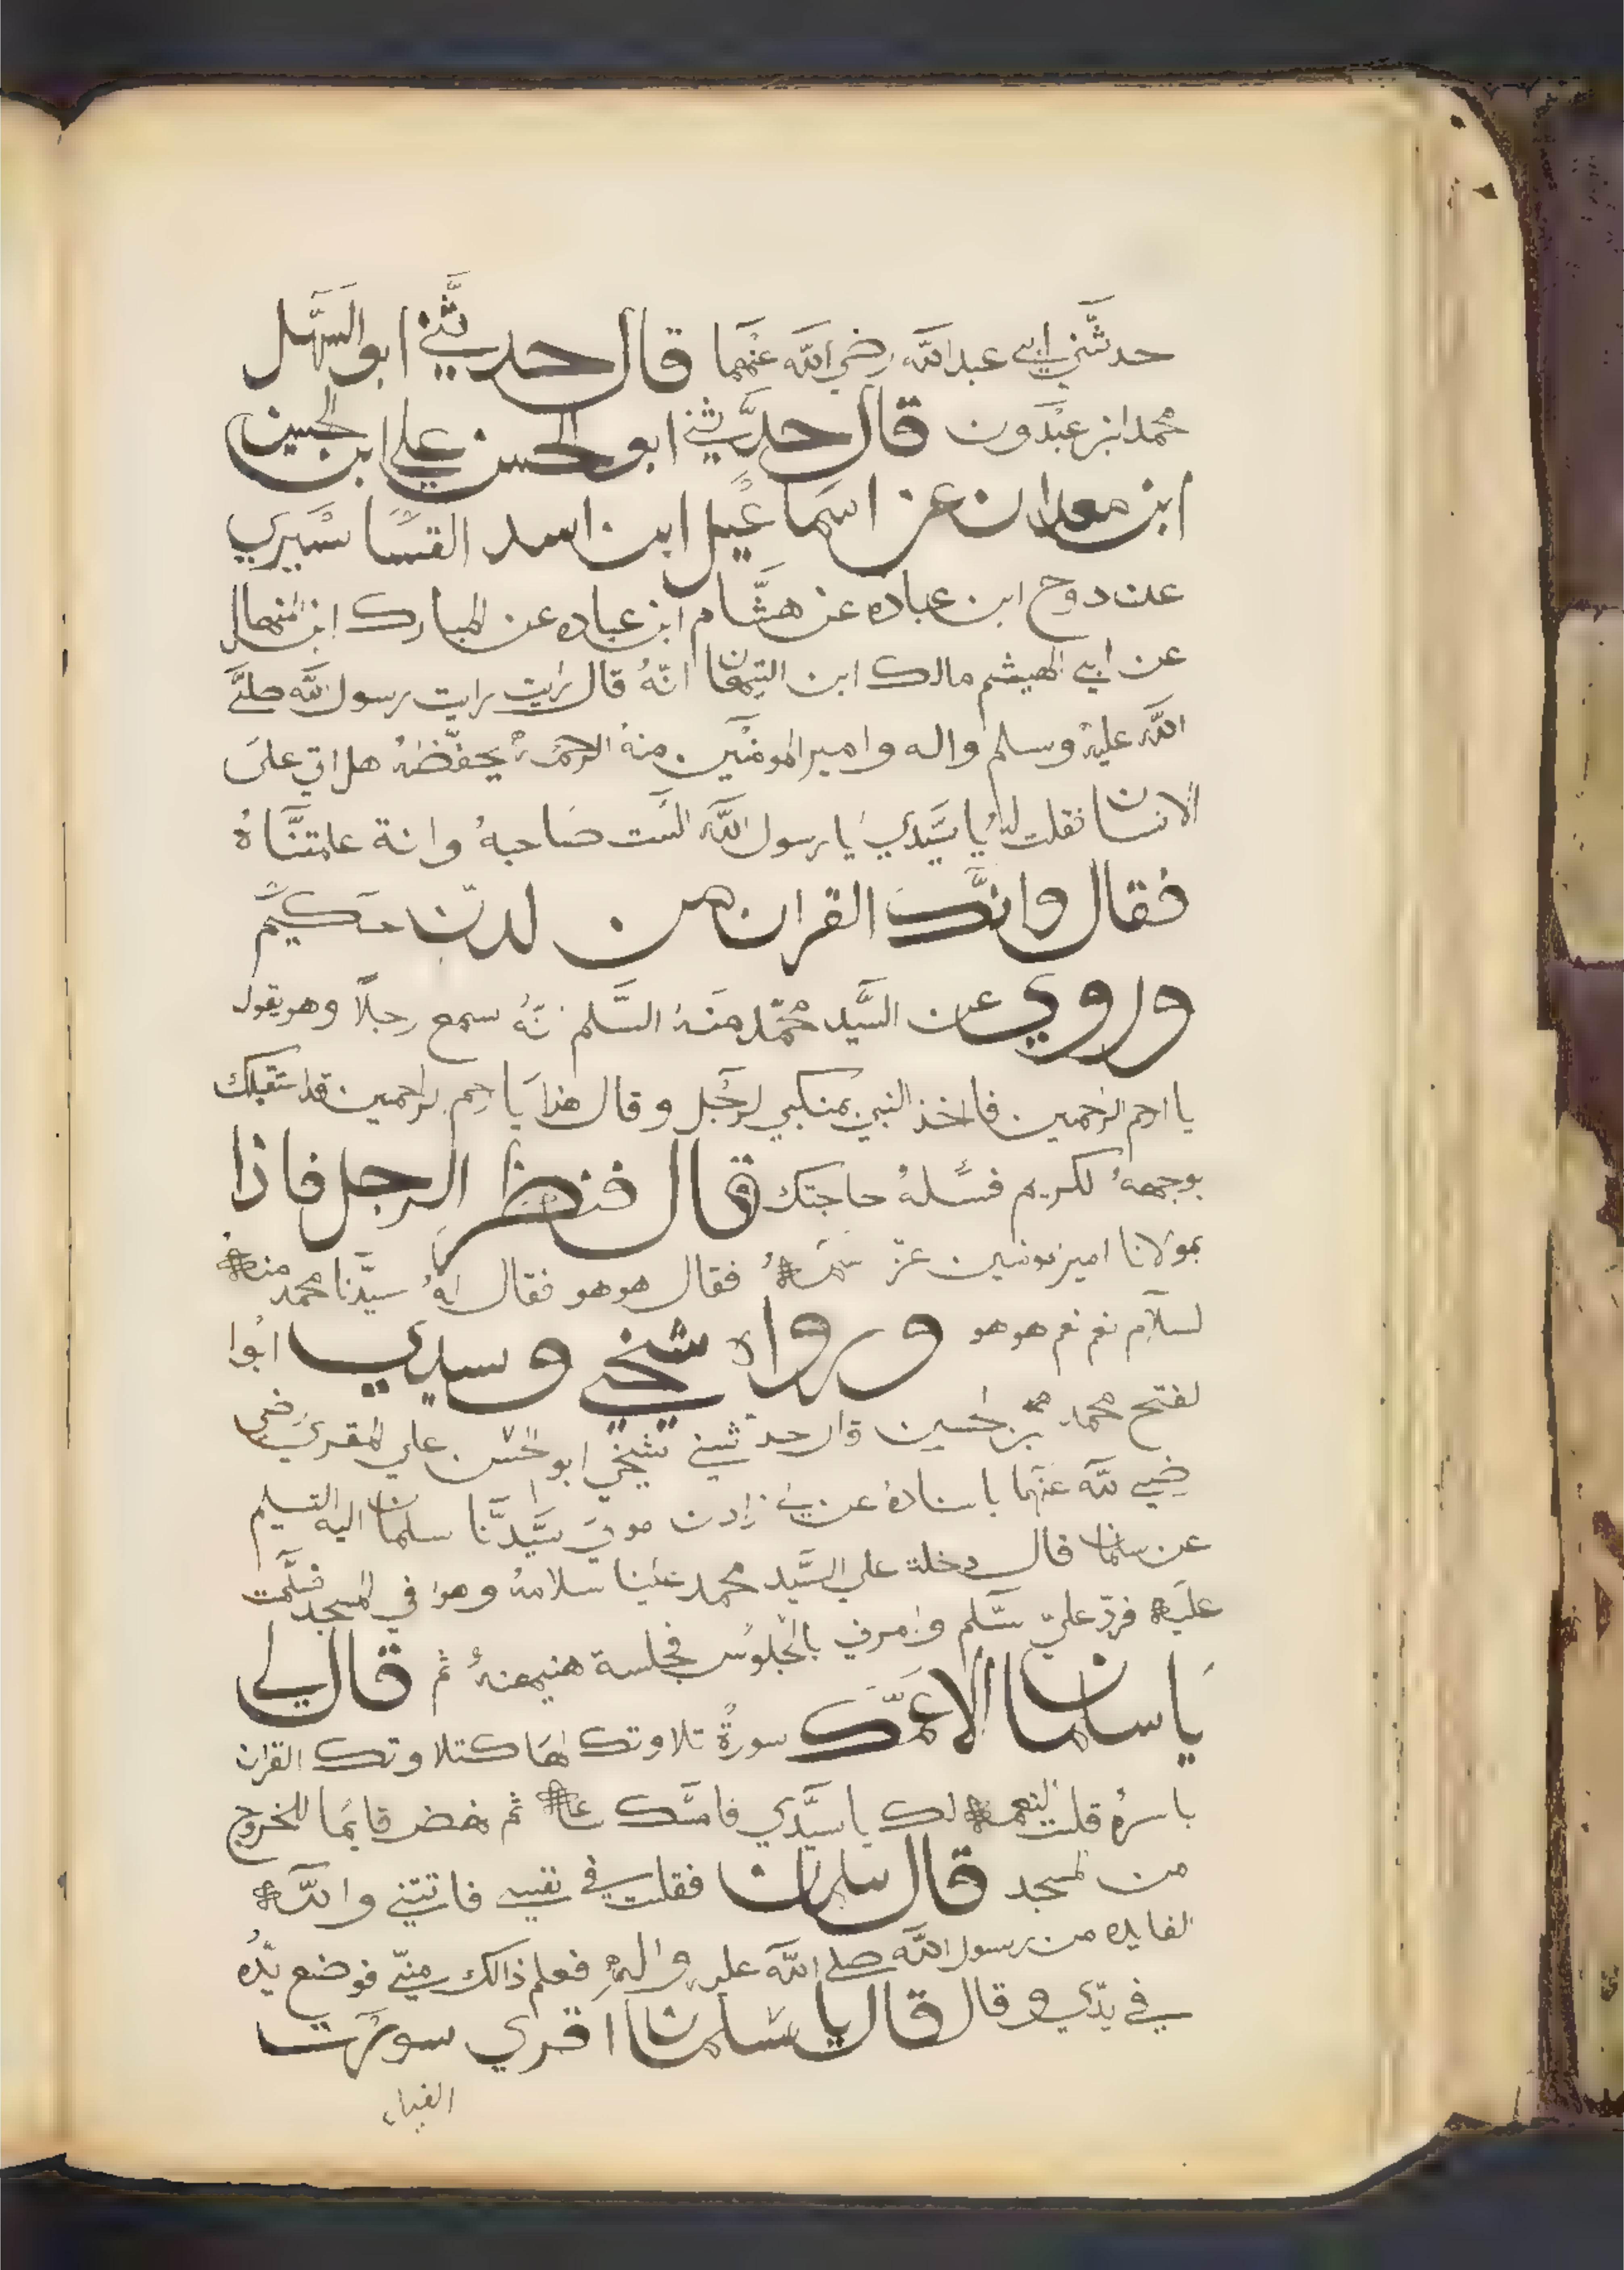 حدثني ابي عبد الله رضي الله عنهما قال حدثني ابو السهل
محمد ابن عبدون قال حدثني ابو الحسن علي ابن الحسين
ابن معدان عن اسماعيل ابن اسد القساسيري
عن روح ابن عباده عن هشام ابن عباده عن المبارك ابن المنهال
عن ابي الهيثم مالك ابن التيهان انه قال رايت رايت رسول الله صلى
الله عليه وسلم واله وامير المومنين منه الرحمه يحفظه هل اتى على
الانسان فقلت له يا سيدي يا رسول الله الست صاحبه وانة علمتناه
فقال وانك القران من لدن حكيم
وروي عن السيد محمد منه السلم نه سمع رجلا وهو يقول
يا ارحم الرحمين فاخذ النبي بمنكبي لرجل وقال هذا يا رحم لراحمين قد استقبلك
بوجهه لكريم فسله حاجتك قال فنظر الرجل فاذا
بمولانا امير مومنين عز فقال هو هو فقال له سيدنا محمد منه
لسلام نعم نعم هو هو ورواه شيخي وسيدي ابوا
لفتح محمد بن لحسين قال حدثني شيخي ابو الحسن علي لمقري رضي
ضي لله عنهما باسناده عن زادن مولى سيدنا سلمان اليه التسليم
عن سلمان قال دخلة علي السيد محمد علينا سلامه وهوا في المسجد فسلمت
عليه فرد علي سلم وامرني بالجلوس فجلسة هنيهنه ثم قال لي
يا سلمان الا اعلمك سورة تلاوتك لها كتلاوتك القران
باسره قلت النعمه لك يا سيدي فامسك ثم نهض قايما للخروج
من لمسجد قال سلمان فقلت في نفسي فاتتني والله
الفايده من رسول الله صلى الله عليه واله فعلم ذالك مني فوضع يده
في يدي وقال قال يا سلمان اقري سورت